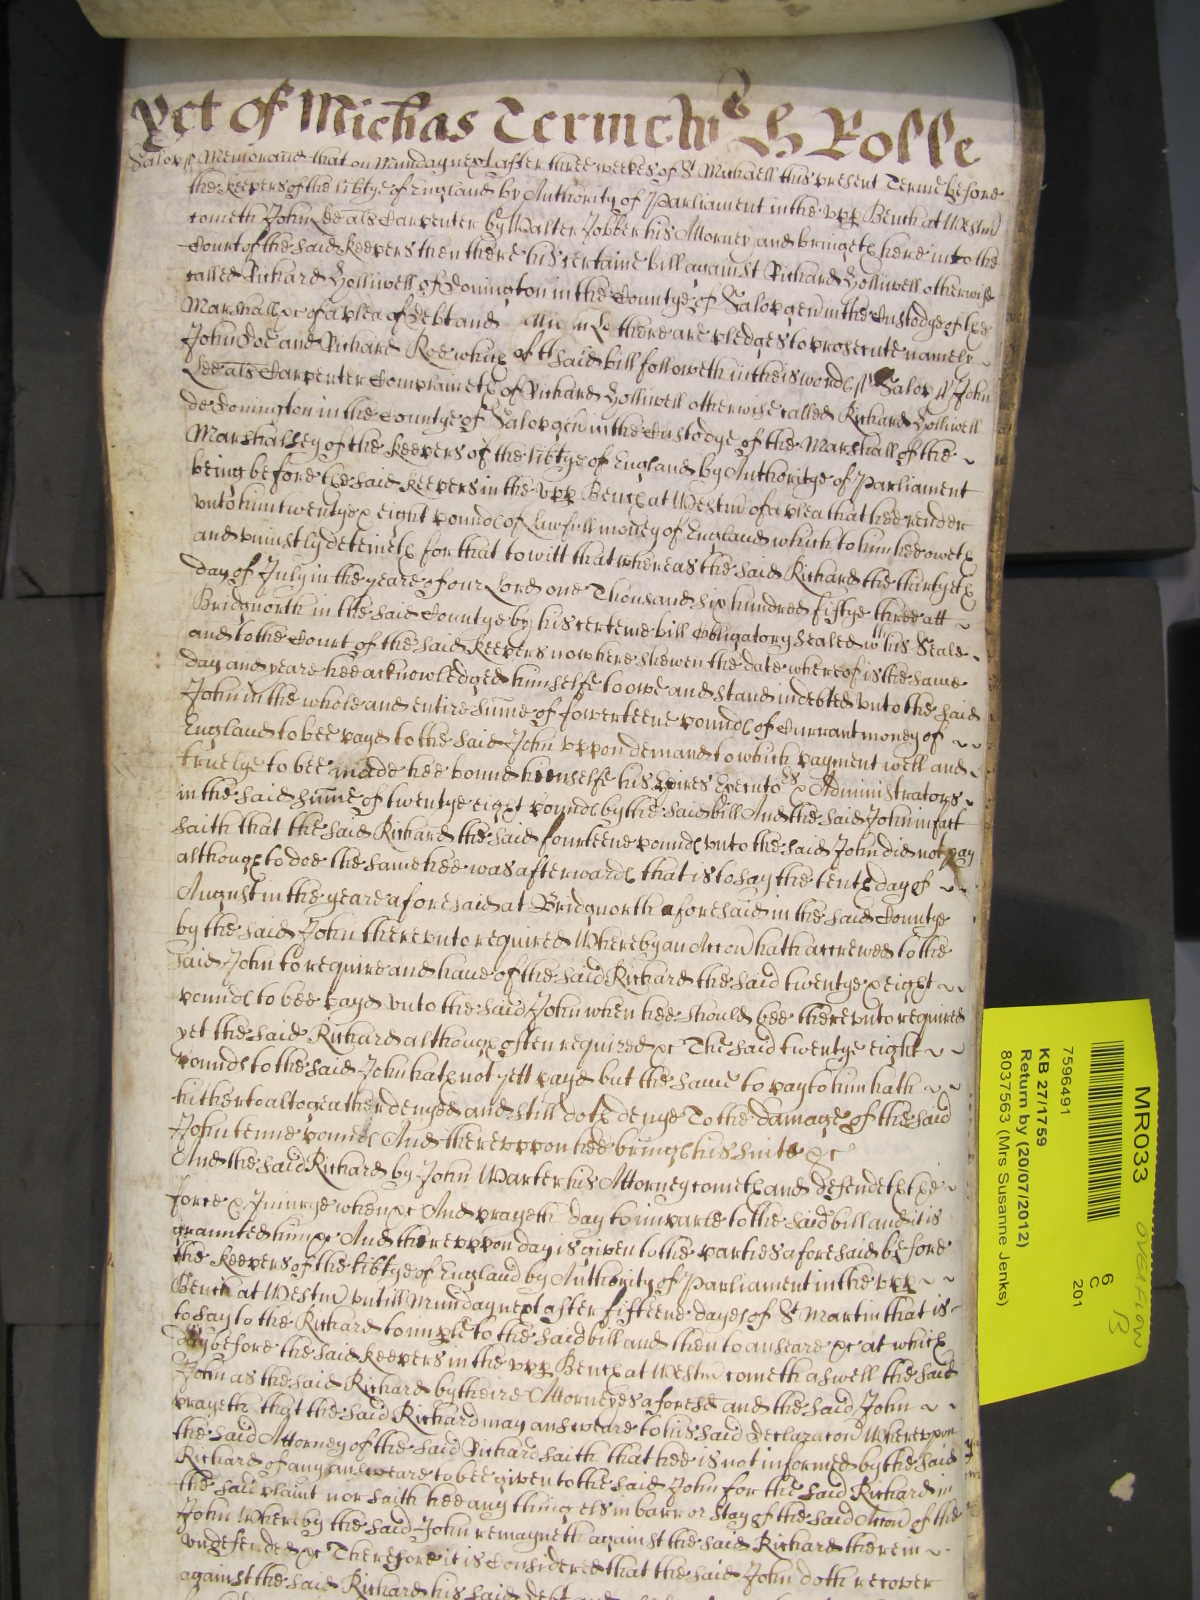 yet of Michas Terme with H Rolle
Salop ss Memorand that on Munday next after three weekes of St Michaell this present Terme before
the keepers of the libtye of England by Authority of Parliament in the vpp Bench at Westm
cometh John Lee als Carpenter by Walter Jobber his Attorney and bringeth here into the
Court of the said keepers then there his certaine bill against Richard Holliwell otherwise
called Richard Holliwell of Donington in the Countye of Salop gen in the Custodye of the
Marshall &c of a plea of Debt and there are pledges to prosecute namely
John Doe and Richard Roe which said bill followeth in theis words ss Salop ss John
Lee als Carpenter Complaineth of Richard Holliwell otherwise called Richard Holliwell
de Donington in the Countye of Salop gen in the Custodye of the Marshall of the
Marshalsey of the keepers of the libtye of England by Authoritye of Parliament
being before the said keepers in the vpp Bench at Westm of a plea that hee render
vnto him twentye & eight pounds of lawfull money of England which to him hee oweth
and vniustly deteineth for that to witt that whereas the said Richard the thirtyeth
day of July in the yeare of our Lord one Thousand six hundred fiftye three att
Bridgnorth in the said Countye by his certeine bill Obligatory Sealed wth his Seale
and to the Court of the said keepers now here shewen the date whereof is the same
day and yeare hee acknowledged himselfe to owe and stand indebted vnto the said
John in the whole and entire sume of fowerteene pounds of Currant money of
England to bee payd to the said John vppon demand to which payment well and
truelye to bee made hee bound himselfe his heires Executors & Administrators
in the said sume of twentye eight pounds by the said bill And the said John in fact
saith that the said Richard the said fourteene pounds vnto the said John did not pay
although to doe the same hee was afterwards that is to say the tenth day of
August in the yeare aforesaid at Bridgnorth aforesaid in the said Countye
by the said John therevnto required Whereby an Accon hath accrewed to the
said John to require and haue of the said Richard the said twentye & eight
pounds to bee payd vnto the said John when hee should bee therevnto required
yet the said Richard although often required &c The said twentye eight
pounds to the said John hath not yett payd but the same to pay to him hath
hitherto altogeather denyed and still doth denye To the damage of the said
John tenne pounds And therevppon hee brings his suite &c
And the said Richard by John Warter his Attorney cometh and defendeth the
force & Iniurye when &c And prayeth day to imparle to the said bill and it is
graunted him &c And therevppon day is given to the parties aforesaid before
the keepers of the libtye of England by Authority of Parliament in the vpp
Bench at Westm vntill Munday next after fifteene dayes of St Martin that is
to say to the Richard to imple to the said bill and then to answeare &c at which
day before the said keepers in the vpp Bench at Westm cometh aswell the said
John as the said Richard by theire Attorneyes aforesd and the said John
prayeth that the said Richard may answeare to his said Declaracon Wherevppon
the said Attorney of the said Richard saith that hee is not informed by the said
Richard of any answeare to bee given to the said John for the said Richard in
the said plaint nor saith hee any thing els in barr or stay of the said Accon of the
John Whereby the said John remayneth against the said Richard therein
vndefended &c Therefore it is Considered that the said John doth recover
against the said Richard his said debt and
MR033
OVERFLOW
B
6
C
201
7596491
KB 27/1759
Return by (20/07/2012)
8037563 (Mrs Susanne Jenks)